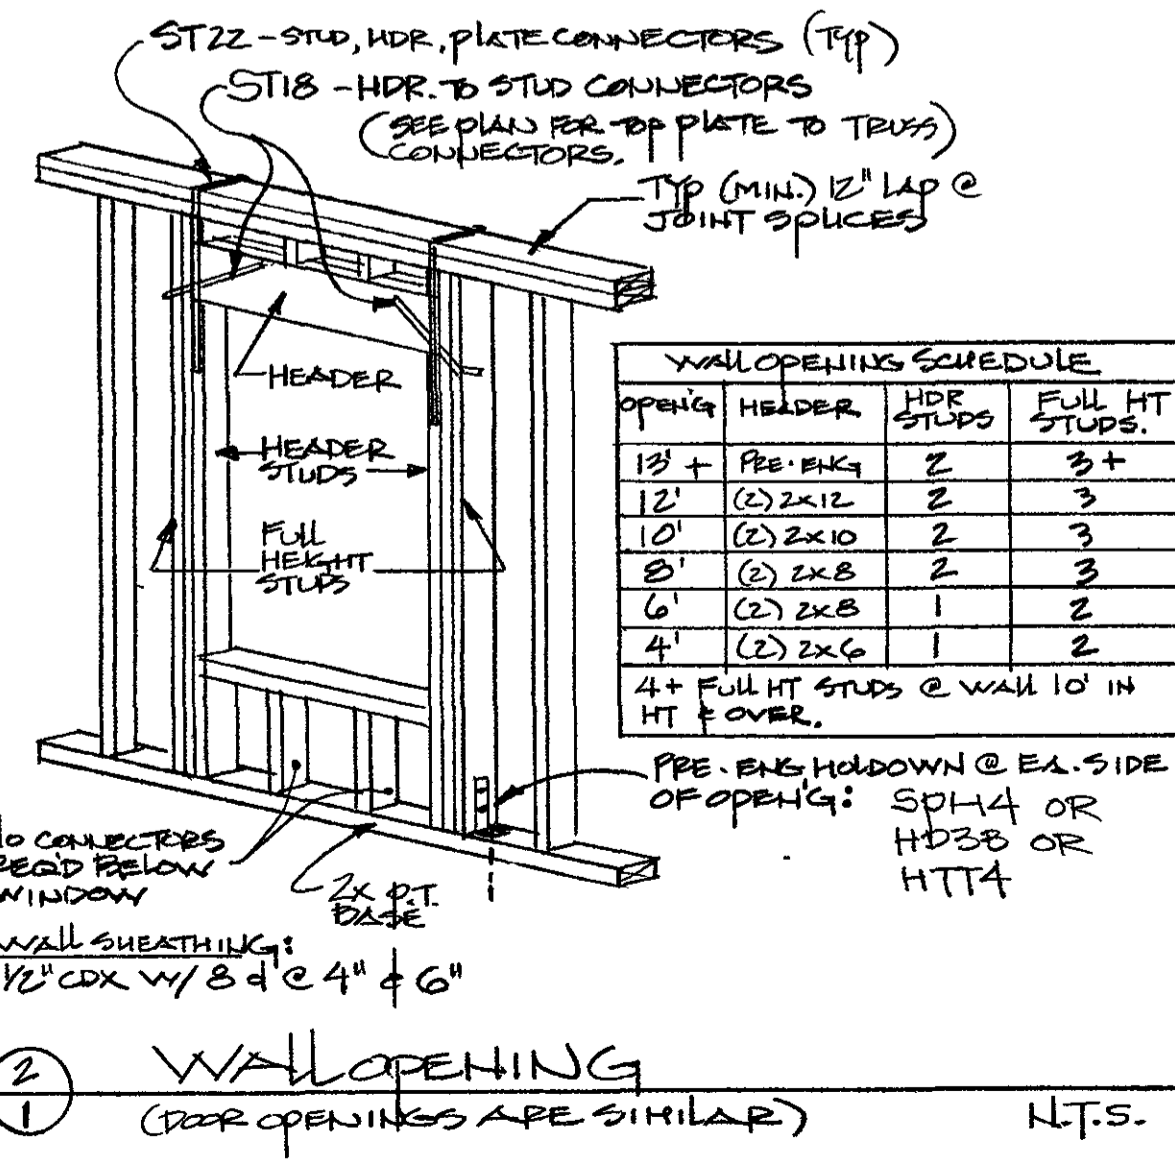 ST22 - STUD, HDR, PLATE CONNECTORS (TYP)
ST18 - HDR. TO STUD CONNECTORS
(SEE PLAN FOR TOP PLATE TO TRUSS)
CONNECTORS.
TYP (MIN.) 12" LAP @
JOINT SPLICES
HEADER
HEADER
STUDS
FULL
HEIGHT
STUDS
WALL OPENING SCHEDULE
OPEN'G HEADER HDR STUDS FULL HT STUDS.
13' + PRE-ENG 2 3+
12' (2) 2x12 2 3
10' (2) 2x10 2 3
8' (2) 2x8 2 3
6' (2) 2x8 1 2
4' (2) 2x6 1 2
4+ FULL HT STUDS @ WALL 10' IN
HT & OVER.
PRE-ENG HOLDOWN @ EA. SIDE
OF OPEN'G: SPH4 OR
HD3B OR
HTT4
NO CONNECTORS
REQ'D BELOW
WINDOW
2x P.T.
BASE
WALL SHEATHING:
1/2" CDX W/ 8d @ 4" & 6"
2
1
WALL OPENING
(DOOR OPENINGS ARE SIMILAR)
N.T.S.